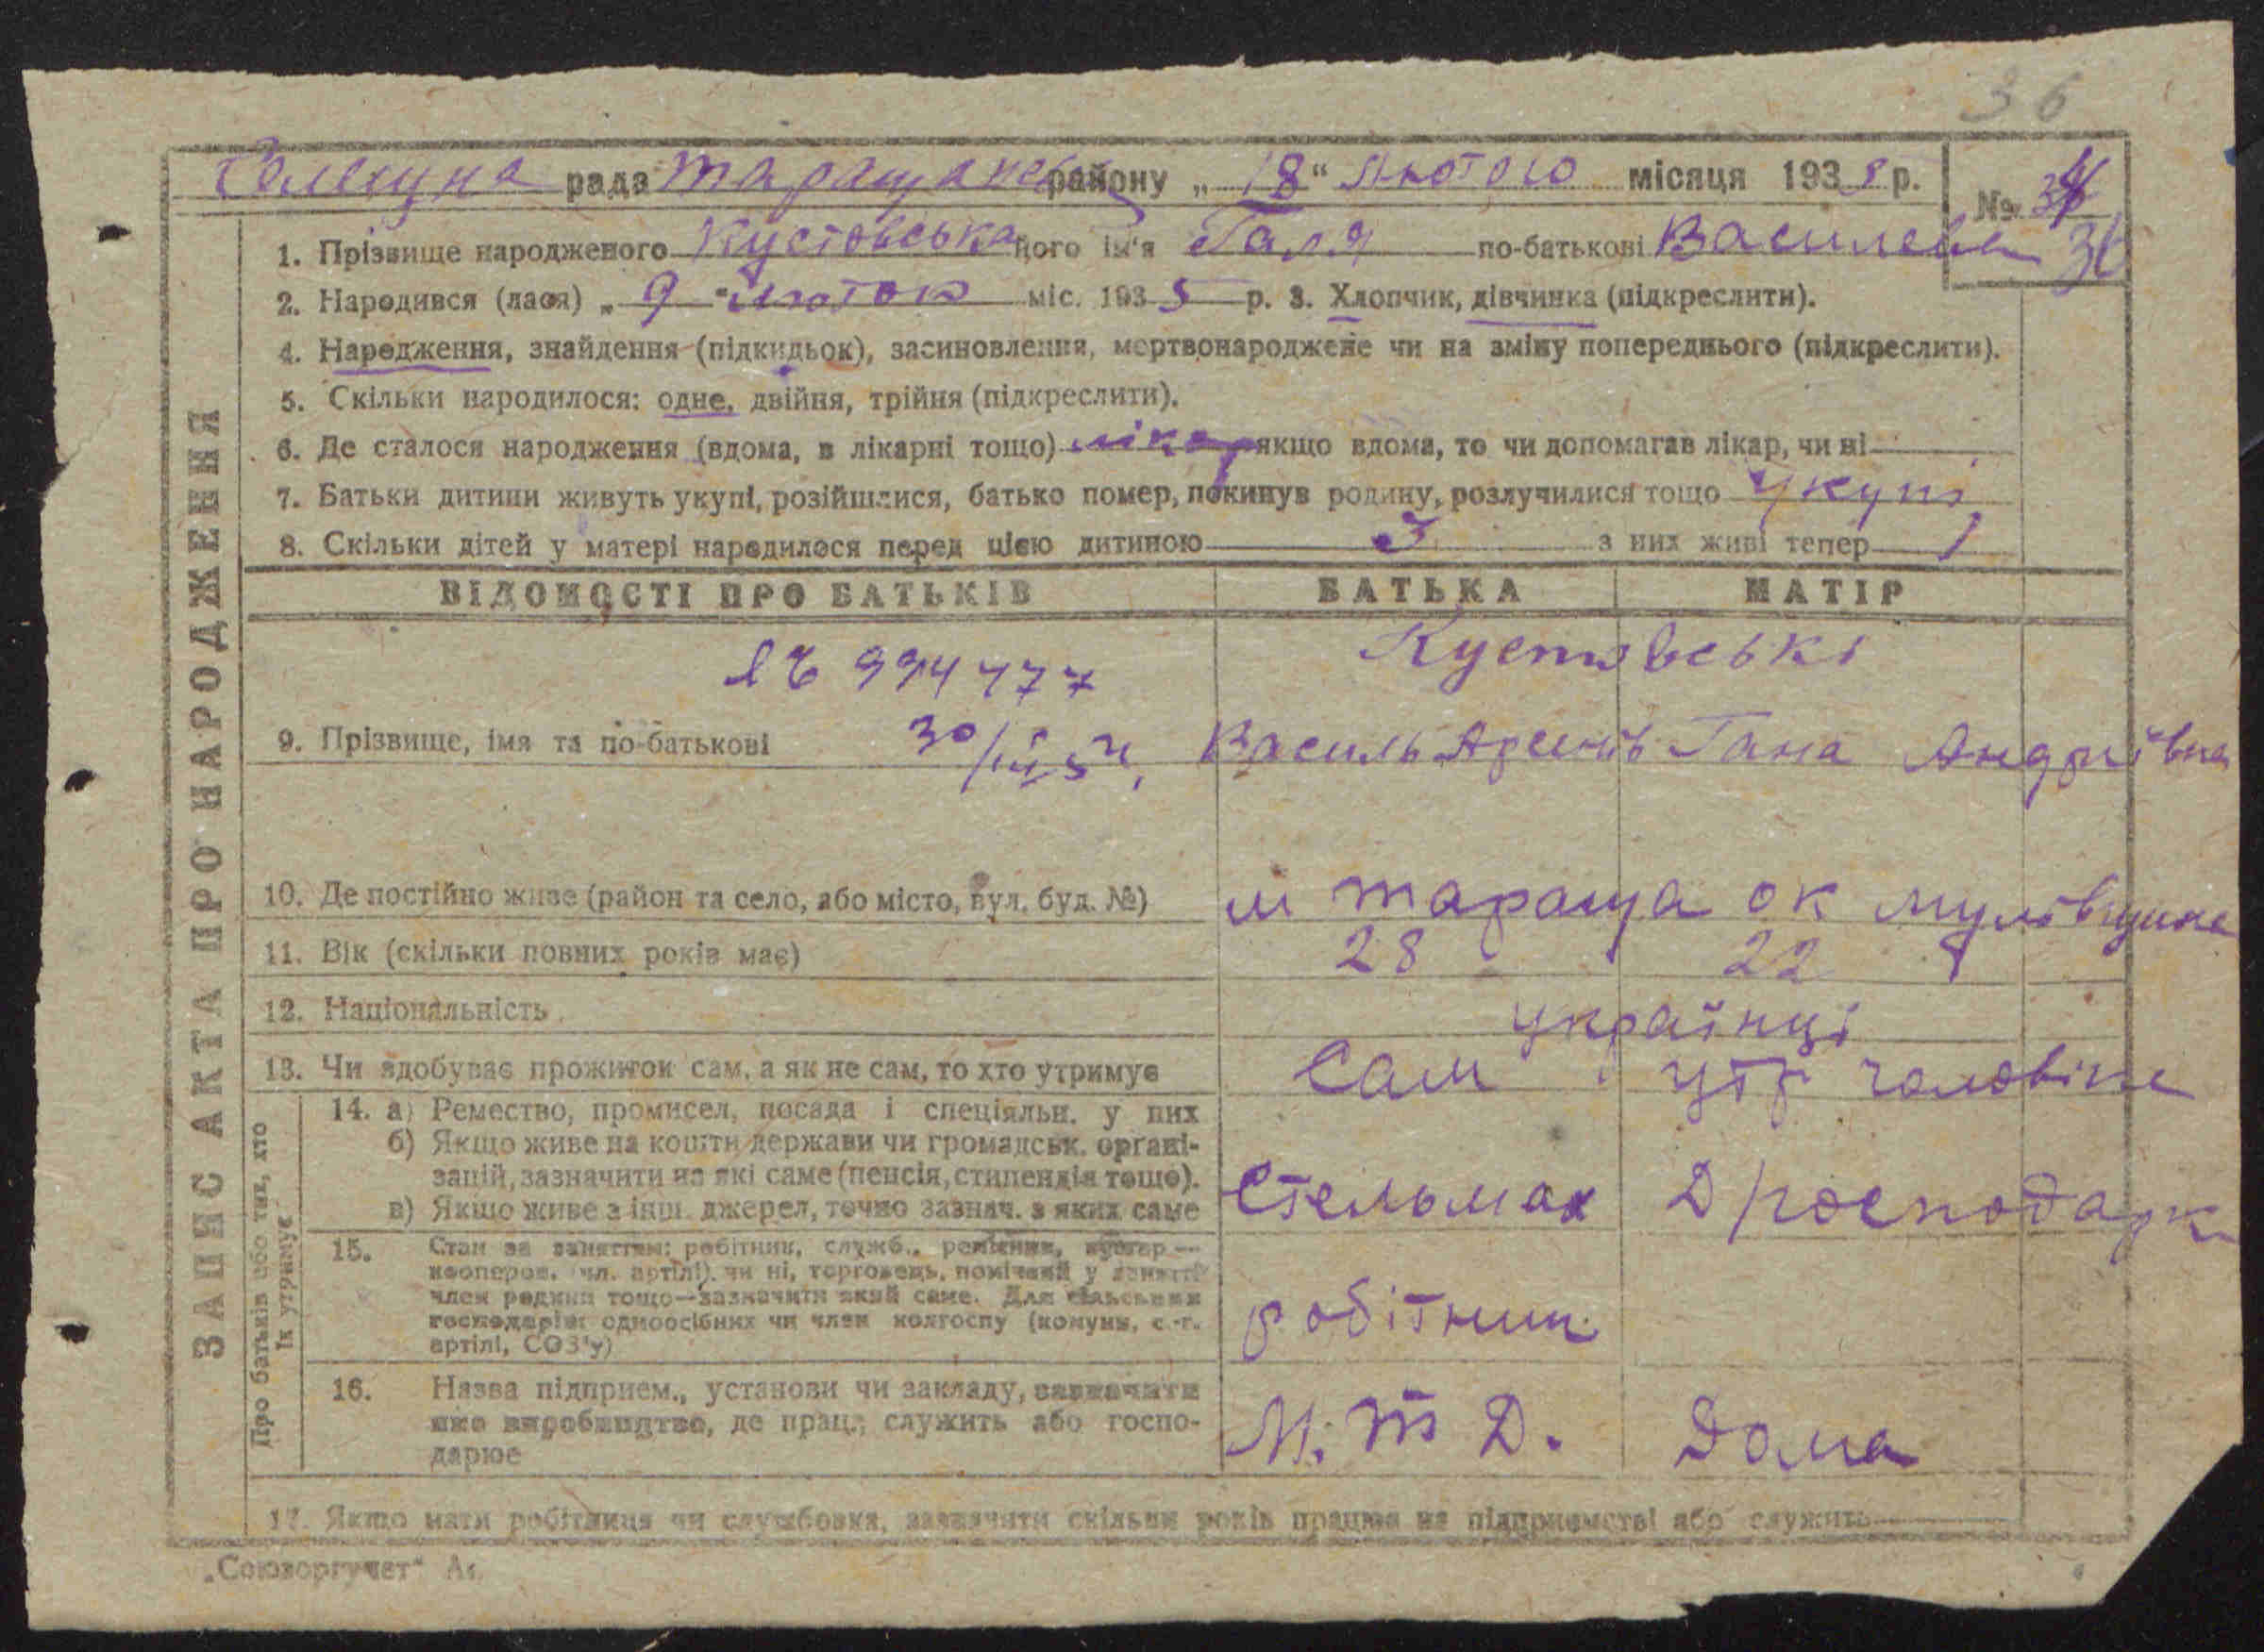 36
Селещна рада Таращанськ району „18“ Лютого місяця 1935 р. № 34
1. Прізвище народженого Кустовська його ім'я Галя по-батькові Василевн 36
2. Народився (лася) „9“ люток міс. 1935 р. 3. Хлопчик, дівчинка (підкреслити).
4. Народження, знайдення (підкидьок), засиновлення, мертвонароджене чи на зміну попереднього (підкреслити).
5. Скільки народилося: одне, двійня, трійня (підкреслити).
6. Де сталося народження (вдома, в лікарні тощо) лікар якщо вдома, то чи допомагав лікар, чи ні
7. Батьки дитини живуть укупі, розійшлися, батько помер, покинув родину, розлучилися тощо укупі
8. Скільки дітей у матері народилося перед цією дитиною з них живі тепер 1
ЗАПИС АКТА ПРО НАРОДЖЕННЯ
ВІДОМОСТІ ПРО БАТЬКІВ БАТЬКА МАТІР
994477 Кустовські
9. Прізвище, імя та по-батькові 30/ Василь Арсенів Гана Андріївна
10. Де постійно живе (район та село, або місто, вул. буд. №) м Тараща ок
11. Вік (скільки повних років має) 28 22
12. Національність українці
13. Чи здобуває прожиток сам, а як не сам, то хто утримує Сам утр чоловіка
Про батьків або тих, хто їх утримує
14. а) Ремество, промисел, посада і спеціяльн. у них
б) Якщо живе на кошти держави чи громадськ. органі-
зацій, зазначити на які саме (пенсія, стипендія тощо). Стельмах Д/господарк
в) Якщо живе з інш. джерел, точно зазнач. з яких саме
15. Стан за заняттям: робітник, служб., ремісник, кустар —
кооперов. (чл. артілі). чи ні, торговець, помічний у занятті
член родини тощо—зазначити який саме. Для сільських
господарів: одноосібник чи член колгоспу (комуни, с.-г.
артілі, СОЗ'у) робітник
16. Назва підприєм., установи чи закладу, зазначити
яке виробництво, де прац., служить або госпо-
дарює М. Т Д. Дома
17. Якщо мати робітниця чи службовка, зазначити скільки років працює на підприємстві або служить
„Союзоргучет“